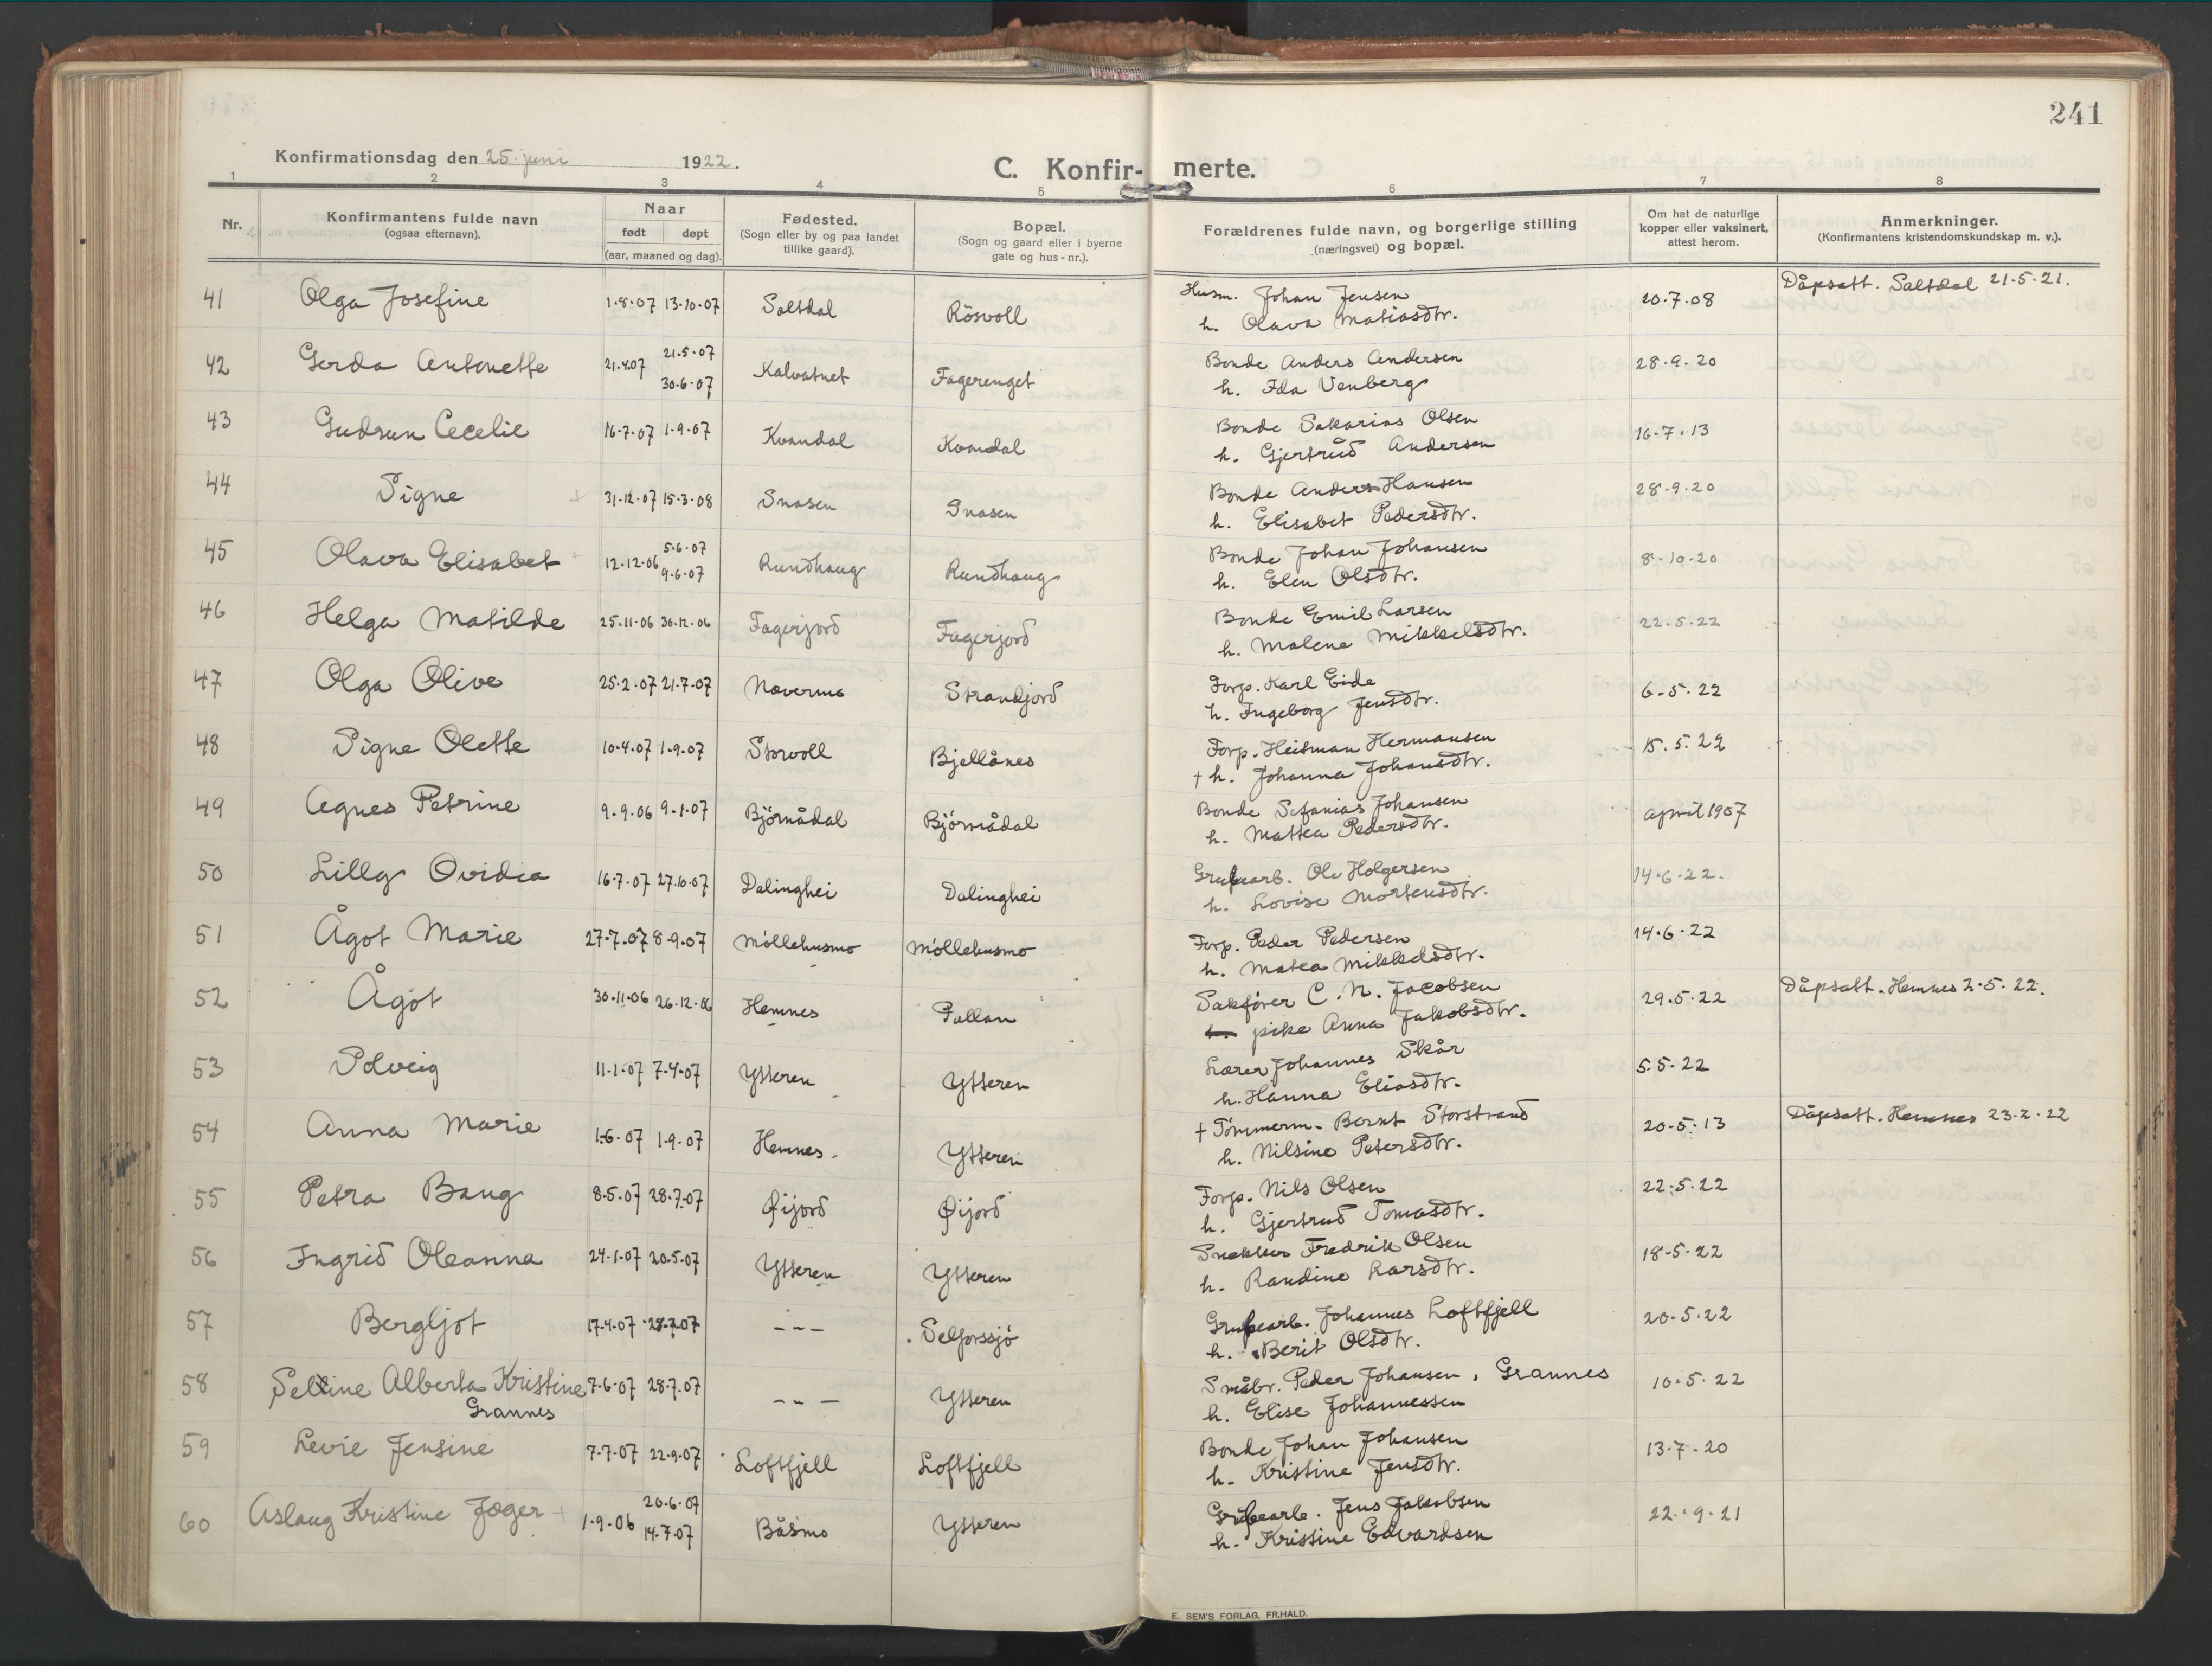 241
Konfirmationsdag den 25. juni 1922.
C. Konfir- merte.
1 2 3 4 5 6 7 8
Nr.
Konfirmantens fulde navn
(ogsaa efternavn).
Naar
født døpt
(aar, maaned og dag).
Fødested.
(Sogn eller by og paa landet
tillike gaard).
Bopæl.
(Sogn og gaard eller i byerne
gate og hus-nr.).
Forældrenes fulde navn, og borgerlige stilling
(næringsvei) og bopæl.
Om hat de naturlige
kopper eller vaksinert,
attest herom.
Anmerkninger.
(Konfirmantens kristendomskundskap m. v.).
41 Olga Josefine 1-8-07 13-10-07 Saltdal Rösvoll Husm. Johan Jensen 20-7-08 Dåpsatt. Saltdal 21-5-21.
h. Olava Matiasdtr.
42 Gerda Antonette 21.4.07 21-5-07 Kalvatnet Fagerenget Bonde Anders Andersen 28-9-20
30-6-07 h. Ida Venberg
43 Gudrun Cecelie 16-7-07 1-9-07 Kvandal Kvandal Bonde Sakarias Olsen 16-7-13
h. Gjertrud Andersen
44 Signe 31-12-07 15-3-08 Snasen Snasen Bonde Anders Hansen 28-9-20
h. Elisabet Pedersdtr.
45 Olava Elisabet 12-12-06 5-6-07 Rundhaug Rundhaug Bonde Johan Johansen 8-10-20
9-6-07 h. Elen Olsdtr.
46 Helga Matilde 25-11-06 30-12-06 Fagerjord Fagerjord Bonde Emil Larsen 22-5-22
h. Malene Mikkelsdtr.
47 Olga Olive 25-2-07 21-7-07 Naverma Strandjord Forp. Karl Eide 6-5-22
h. Ingeborg Jensdtr.
48 Signe Olette 10-4-07 1-9-07 Storvoll Bjellånes Forp. Heitman Hermansen 15.5.22
+ h. Johanna Johansdtr.
49 Agnes Petrine 9-9-06 9-1-07 Björnådal Björnådal Bonde Sefanias Johansen april 1907
h. Mattea Pedersdtr.
50 Lilly Ovidia 16-7-07 27.10.07 Dalinghei Dalinghei Grubearb. Ole Holgersen 14-6-22.
h. Lovise Mortensdtr.
51 Ågot Marie 27-7-07 8-9-07 Möllehusmo Möllehusmo Forp. Peder Pedersen 14-6-22
h. Matea Mikkelsdtr.
52 Ågot 30-11-06 26-12-06 Hemnes Pallan Sakfører C. N. Jacobsen 29-5-22 Dåpsatt. Hemnes 2-5-22.
pike Anna Jakobsdtr.
53 Solveig 11-1-07 7-4-07 Ytteren Ytteren Lærer Johannes Skår 5-5-22
h. Hanna Eliasdtr.
54 Anna Marie 1-6-07 1-9-07 Hemnes Ytteren + Tömmerm. Bernt Storstrand 20-5-13 Dåpsatt. Hemnes 23-2-22
h. Nilsine Petersdtr.
55 Petra Bang 8-5-07 28-7-07 Øijord Øijord Forp. Nils Olsen 22-5-22
h. Gjertrud Tomasdtr.
56 Ingrid Oleanna 24-1-07 20-5-07 Ytteren Ytteren Snekker Fredrik Olsen 18-5-22
h. Randine Larsdtr.
57 Bergljot 17-4-07 28-7-07 - - - Selforssjö Grubearb. Johannes Loftfjell 20-5-22
h. Berit Olsdtr.
58 Seline Alberta Kristine 7-6-07 28-7-07 - - - Ytteren Småbr. Peder Johansen, Grannes 10-5-22
Grannes h. Elise Johannessen
59 Levie Jensine 7-7-07 22-9-07 Loftfjell Loftfjell Bonde Johan Johansen 13-7-20
h. Kristine Jensdtr.
60 Aslaug Kristine Jæger 1-9-06 20-6-07 Båsmo Ytteren Grubearb. Jens Jakobsen 22-9-21
14-7-07 h. Kristine Edvardsen
E. SEM'S FORLAG, FR.HALD.